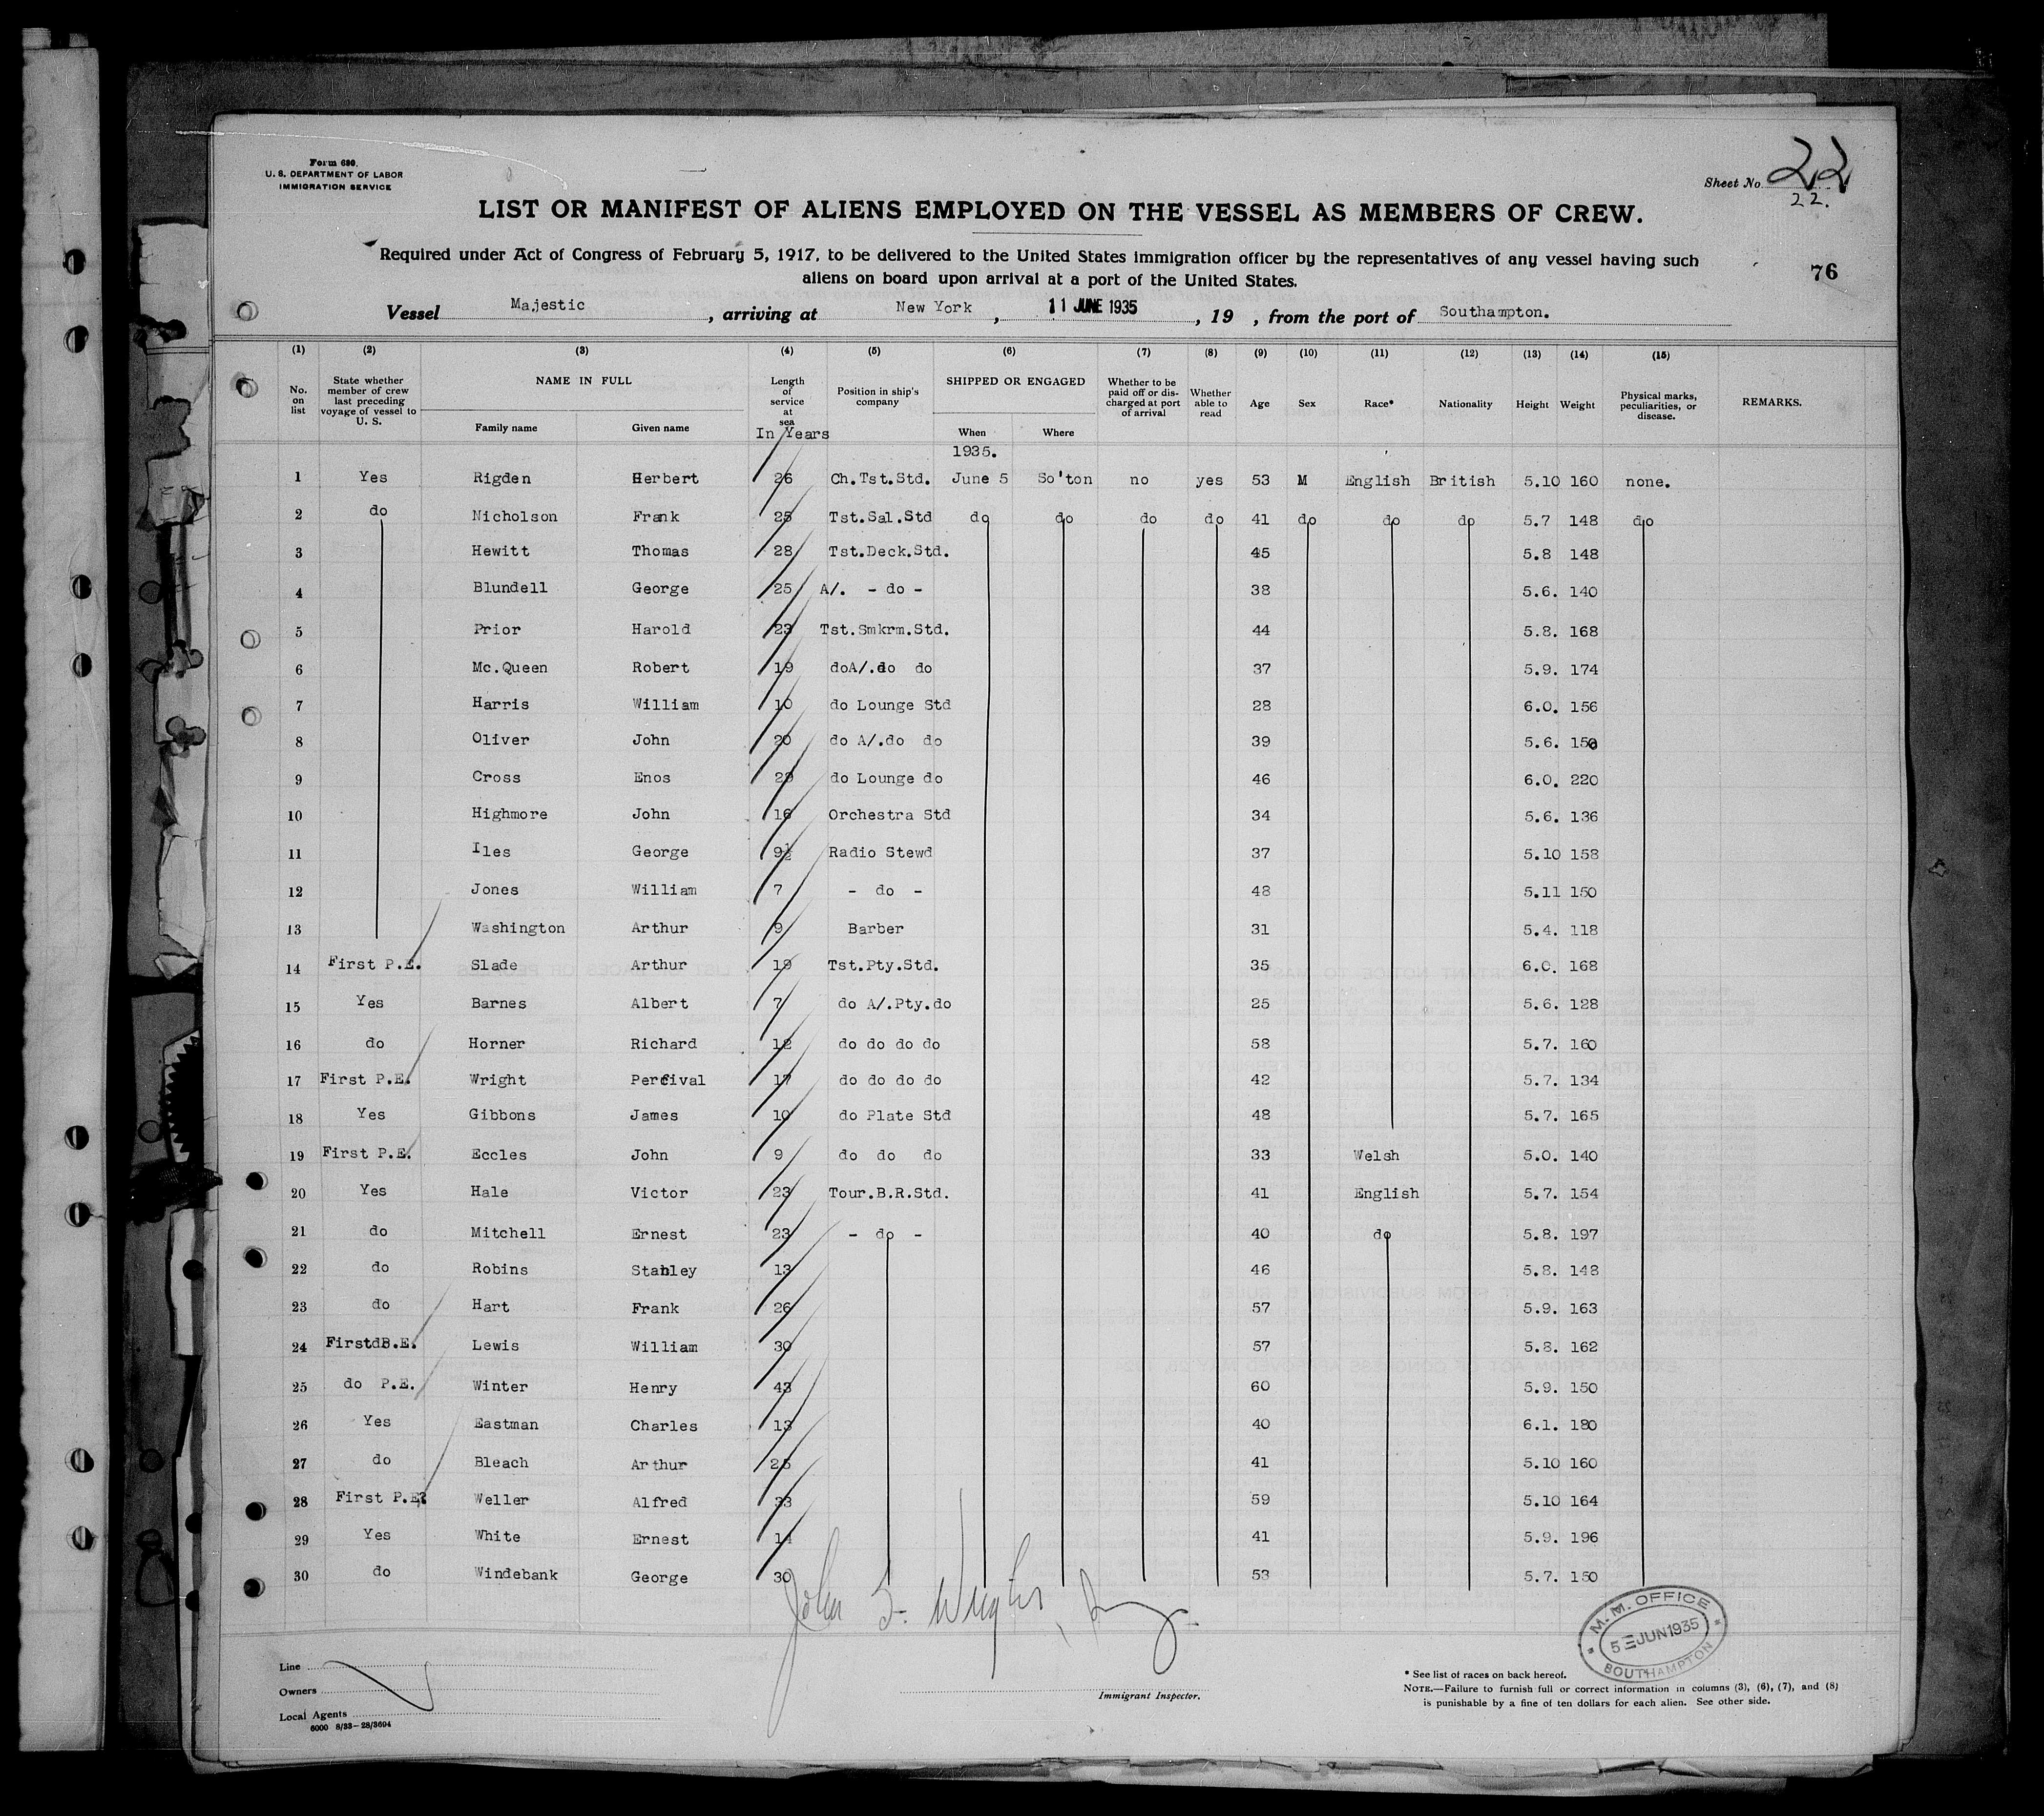 Form 680.
U. S. DEPARTMENT OF LABOR
IMMIGRATION SERVICE
Sheet No. 22
22.
LIST OR MANIFEST OF ALIENS EMPLOYED ON THE VESSEL AS MEMBERS OF CREW.
Required under Act of Congress of February 5, 1917, to be delivered to the United States immigration officer by the representatives of any vessel having such
aliens on board upon arrival at a port of the United States.
76
Vessel Majestic, arriving at New York, 11 JUNE 1935, 19 , from the port of Southampton.
(1) (2) (3) (4) (5) (6) (7) (8) (9) (10) (11) (12) (13) (14) (15)
No. on list State whether member of crew last preceding voyage of vessel to U. S. NAME IN FULL Family name Given name Length of service at sea In Years Position in ship's company SHIPPED OR ENGAGED When Where Whether to be paid off or discharged at port of arrival Whether able to read Age Sex Race* Nationality Height Weight Physical marks, peculiarities, or disease. REMARKS.
1935.
1 Yes Rigden Herbert 26 Ch.Tst.Std. June 5 So'ton no yes 53 M English British 5.10 160 none.
2 do Nicholson Frank 25 Tst.Sal.Std do do do do 41 do do do 5.7 148 do
3 Hewitt Thomas 28 Tst.Deck.Std. 45 5.8 148
4 Blundell George 25 A/. - do - 38 5.6. 140
5 Prior Harold 23 Tst.Smkrm.Std. 44 5.8. 168
6 Mc.Queen Robert 19 doA/.do do 37 5.9. 174
7 Harris William 10 do Lounge Std 28 6.0. 156
8 Oliver John 20 do A/.do do 39 5.6. 150
9 Cross Enos 29 do Lounge do 46 6.0. 220
10 Highmore John 16 Orchestra Std 34 5.6. 136
11 Iles George 9½ Radio Stewd 37 5.10 158
12 Jones William 7 - do - 48 5.11 150
13 Washington Arthur 9 Barber 31 5.4. 118
14 First P.E. Slade Arthur 19 Tst.Pty.Std. 35 6.0. 168
15 Yes Barnes Albert 7 do A/.Pty.do 25 5.6. 128
16 do Horner Richard 12 do do do do 58 5.7. 160
17 First P.E. Wright Percival 17 do do do do 42 5.7. 134
18 Yes Gibbons James 10 do Plate Std 48 5.7. 165
19 First P.E. Eccles John 9 do do do 33 Welsh 5.0. 140
20 Yes Hale Victor 23 Tour.B.R.Std. 41 English 5.7. 154
21 do Mitchell Ernest 23 - do - 40 do 5.8. 197
22 do Robins Stanley 13 46 5.8. 148
23 do Hart Frank 26 57 5.9. 163
24 First P.E. Lewis William 30 57 5.8. 162
25 do P.E. Winter Henry 43 60 5.9. 150
26 Yes Eastman Charles 13 40 6.1. 180
27 do Bleach Arthur 25 41 5.10 160
28 First P.E. Weller Alfred 33 59 5.10 164
29 Yes White Ernest 14 41 5.9. 196
30 do Windebank George 30 53 5.7. 150
John S. Wright,
M. M. OFFICE
5 JUN 1935
SOUTHAMPTON
Line
Owners
Local Agents
6000 8/33—28/3694
Immigrant Inspector.
* See list of races on back hereof.
NOTE.—Failure to furnish full or correct information in columns (3), (6), (7), and (8)
is punishable by a fine of ten dollars for each alien. See other side.